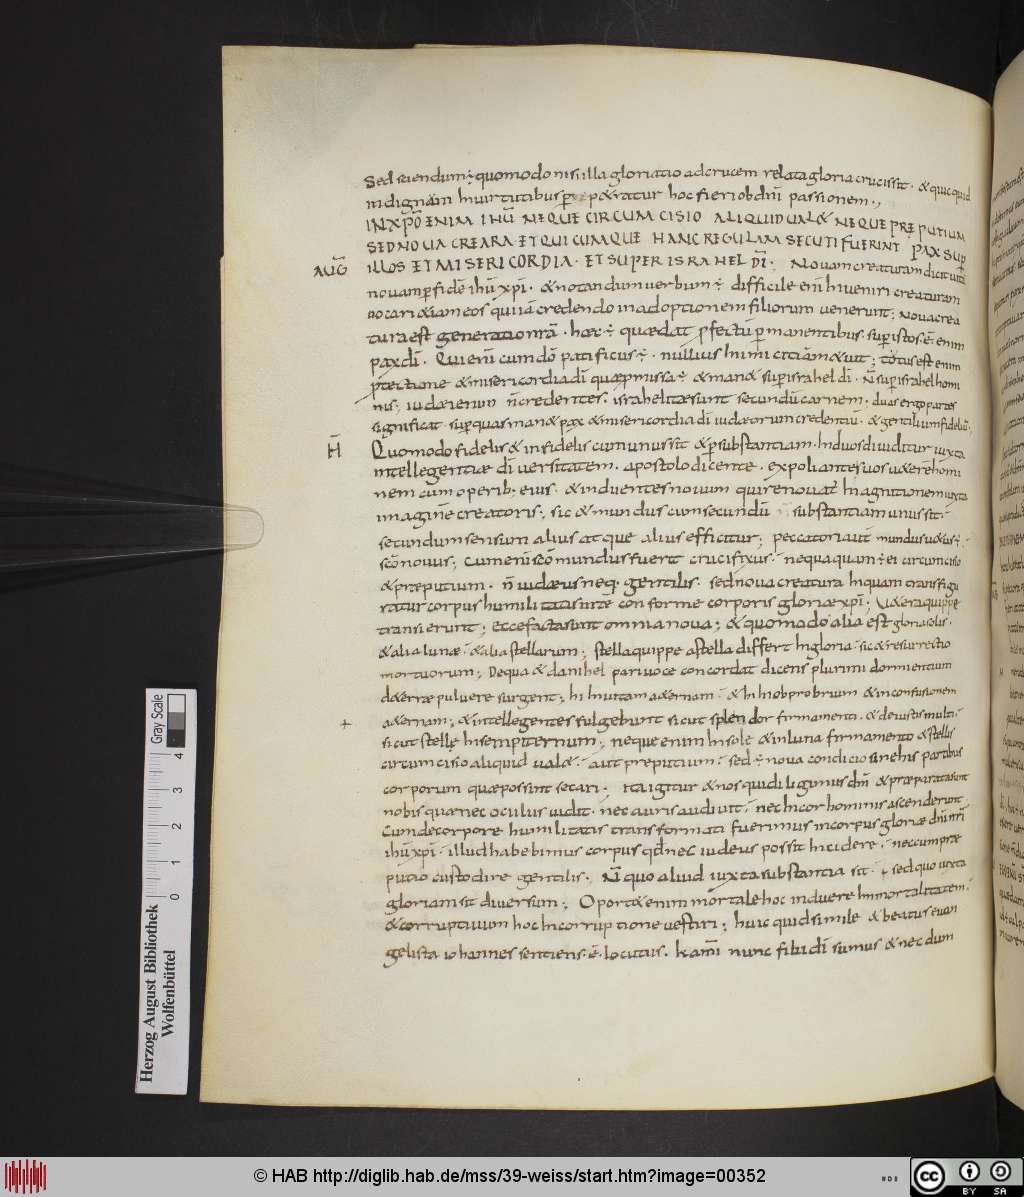 Sed sciendum quomodo nisi illa gloriatio ad crucem relata gloria crucis sit. & quicquid
indignam hi uirtutibus par&ur hoc fieri ob dñi passionem.,
IN XP̄O ENIM IHŪ NEQUE CIRCUMCISIO ALIQUID UAL& NEQUE PREPUTIUM
SED NOUA CREATURA ET QUICUMQUE HANC REGULAM SECUTI FUERINT PAX SUP
AUḠ ILLOS ET MISERICORDIA. ET SUPER ISRAHEL D̄I; Nouam creaturam dicit uitā
nouam p fidē ihū xp̄i. & notandum uerbum difficile enī inueniri creaturam
uocari &iam eos qui iā credendo in adoptionem filiorum uenerunt; Noua crea
tura est generatio nr̄a. hæc quæ dat pfectū pmanentibus. sup istos. ē. enim
pax dī. Qui enī cum dō patificus. nullius inimicitiam &uit; totus est enim
ptectione & misericordia dī quæ pmissa & man& sup israhel dī. N̄ sup israhel homi
nis; iudæi enim n̄ credentes. israhelitæ sunt secundū carnem. duas ergo partes
significat sup quas man& pax & misericordia dī iudæorum credentiū. & gentilium fideliū;
H̄ Quomodo fidelis & infidelis cum unus sit & p substantiam. In duos diuiditur iuxta
intellegentiæ diuersitatem. apostolo dicente. expoliantes uos u&erē homi
nem cum operib; eius. & induentes nouum qui renouat̄ in agnitionem iuxta
imaginē creatoris; sic & mundus cum secundū substantiam unus sit.
secundum sensum alius atque alius efficitur; peccatori aut̄ mundus u&us.
sc̄o nouus; cum enī sc̄o mundus fuerit crucifixus. nequaquam ei circumcisio
& præputium. n̄ iudæus neq. gentilis. sed noua creatura In quam transfigu
ratur corpus humilitatis nr̄æ conforme corporis gloriæ xp̄i; U&era quippe
transierunt; ecce facta sunt omnia noua; & quomodo alia est gloria solis.
& alia lunæ. & alia stellarum; stella quippe a stella differt In gloria. sic & resurrectio
mortuorum; De qua & danihel pari uoce concordat dicens plurimi dormientium
de terræ puluere surgent; hi In uitam &ernam. & hi In obprobrium & in confusionem
&ernam; & intellegentes fulgebunt sicut splendor firmamenti. & de iustis multi.
sicut stellę In sempiternum; neque enim In sole & in luna firmamento & stellis
circumcisio aliquid ual&. aut preputium. sed noua condicio sine his partibus
corporum quæ possint secari; Ita igitur & nos qui diligimus dn̄m & præparata sunt
nobis quæ nec oculus uidit. nec auris audiuit. nec In cor hominis ascenderunt
Cum de corpore humilitatis transformati fuerimus in corpus gloriæ dn̄i nr̄i
ihū xp̄i. illud habebimus corpus qđ nec iudeus possit Incidere. nec cum præ
putio custodire gentilis; N̄ quo aliud iuxta substantia sit. sed quo iuxta
gloriam sit diuersum; Oport& enim mortale hoc induere Inmortalitatem.
& corruptiuum hoc Incorruptione uestiri; huic quid simile & beatus euan
gelista iohannes sentiens. ē. locutus. kam̄i nunc filii dī sumus & necdum
Gray Scale
0 1 2 3 4
Herzog August Bibliothek
Wolfenbüttel
© HAB http://diglib.hab.de/mss/39-weiss/start.htm?image=00352
cc BY SA